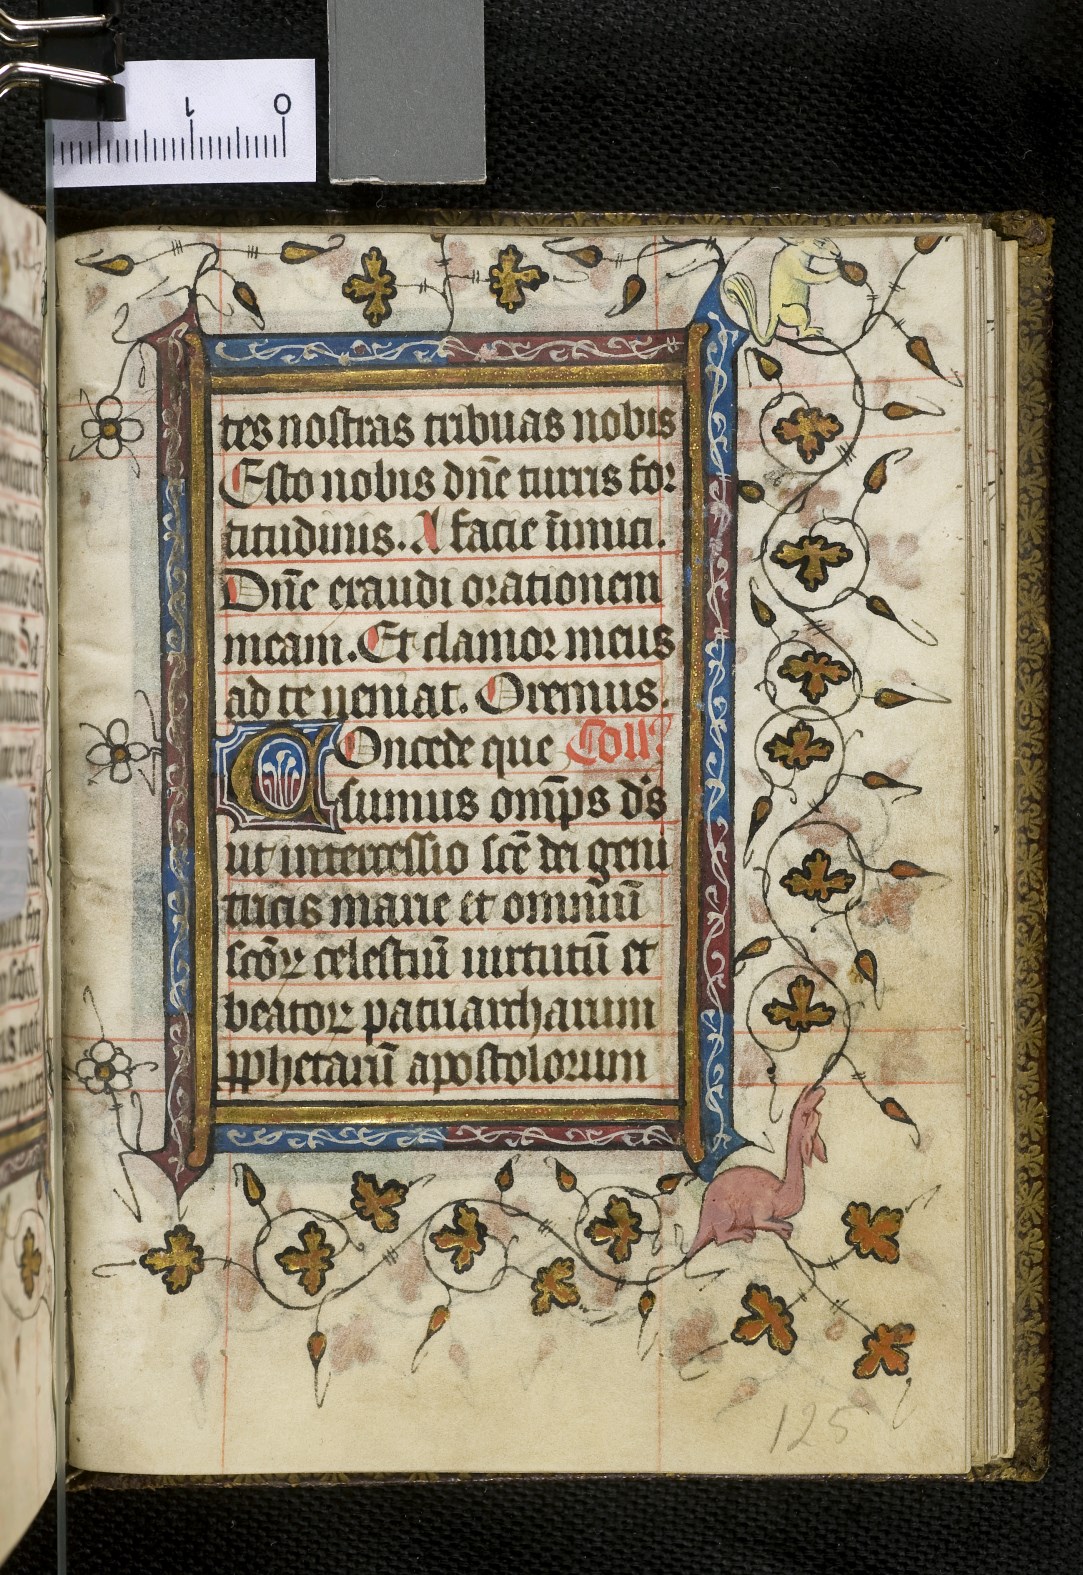 1 0
tes nostras tribuas nobis
Esto nobis dn̄e turris for
titudinis. A facie īimici.
Dn̄e exaudi orationem
meam. Et clamor meus
ad te ueniat. Oremus.
Concede que Coll'
sumus om̄ps d's
ut intercessio sc̄e dei geni
tricis marie et omniū
sc̄oꝝ celestiū uirtutū et
beatoꝝ patriarcharum
ꝓphetarū apostolorum
125